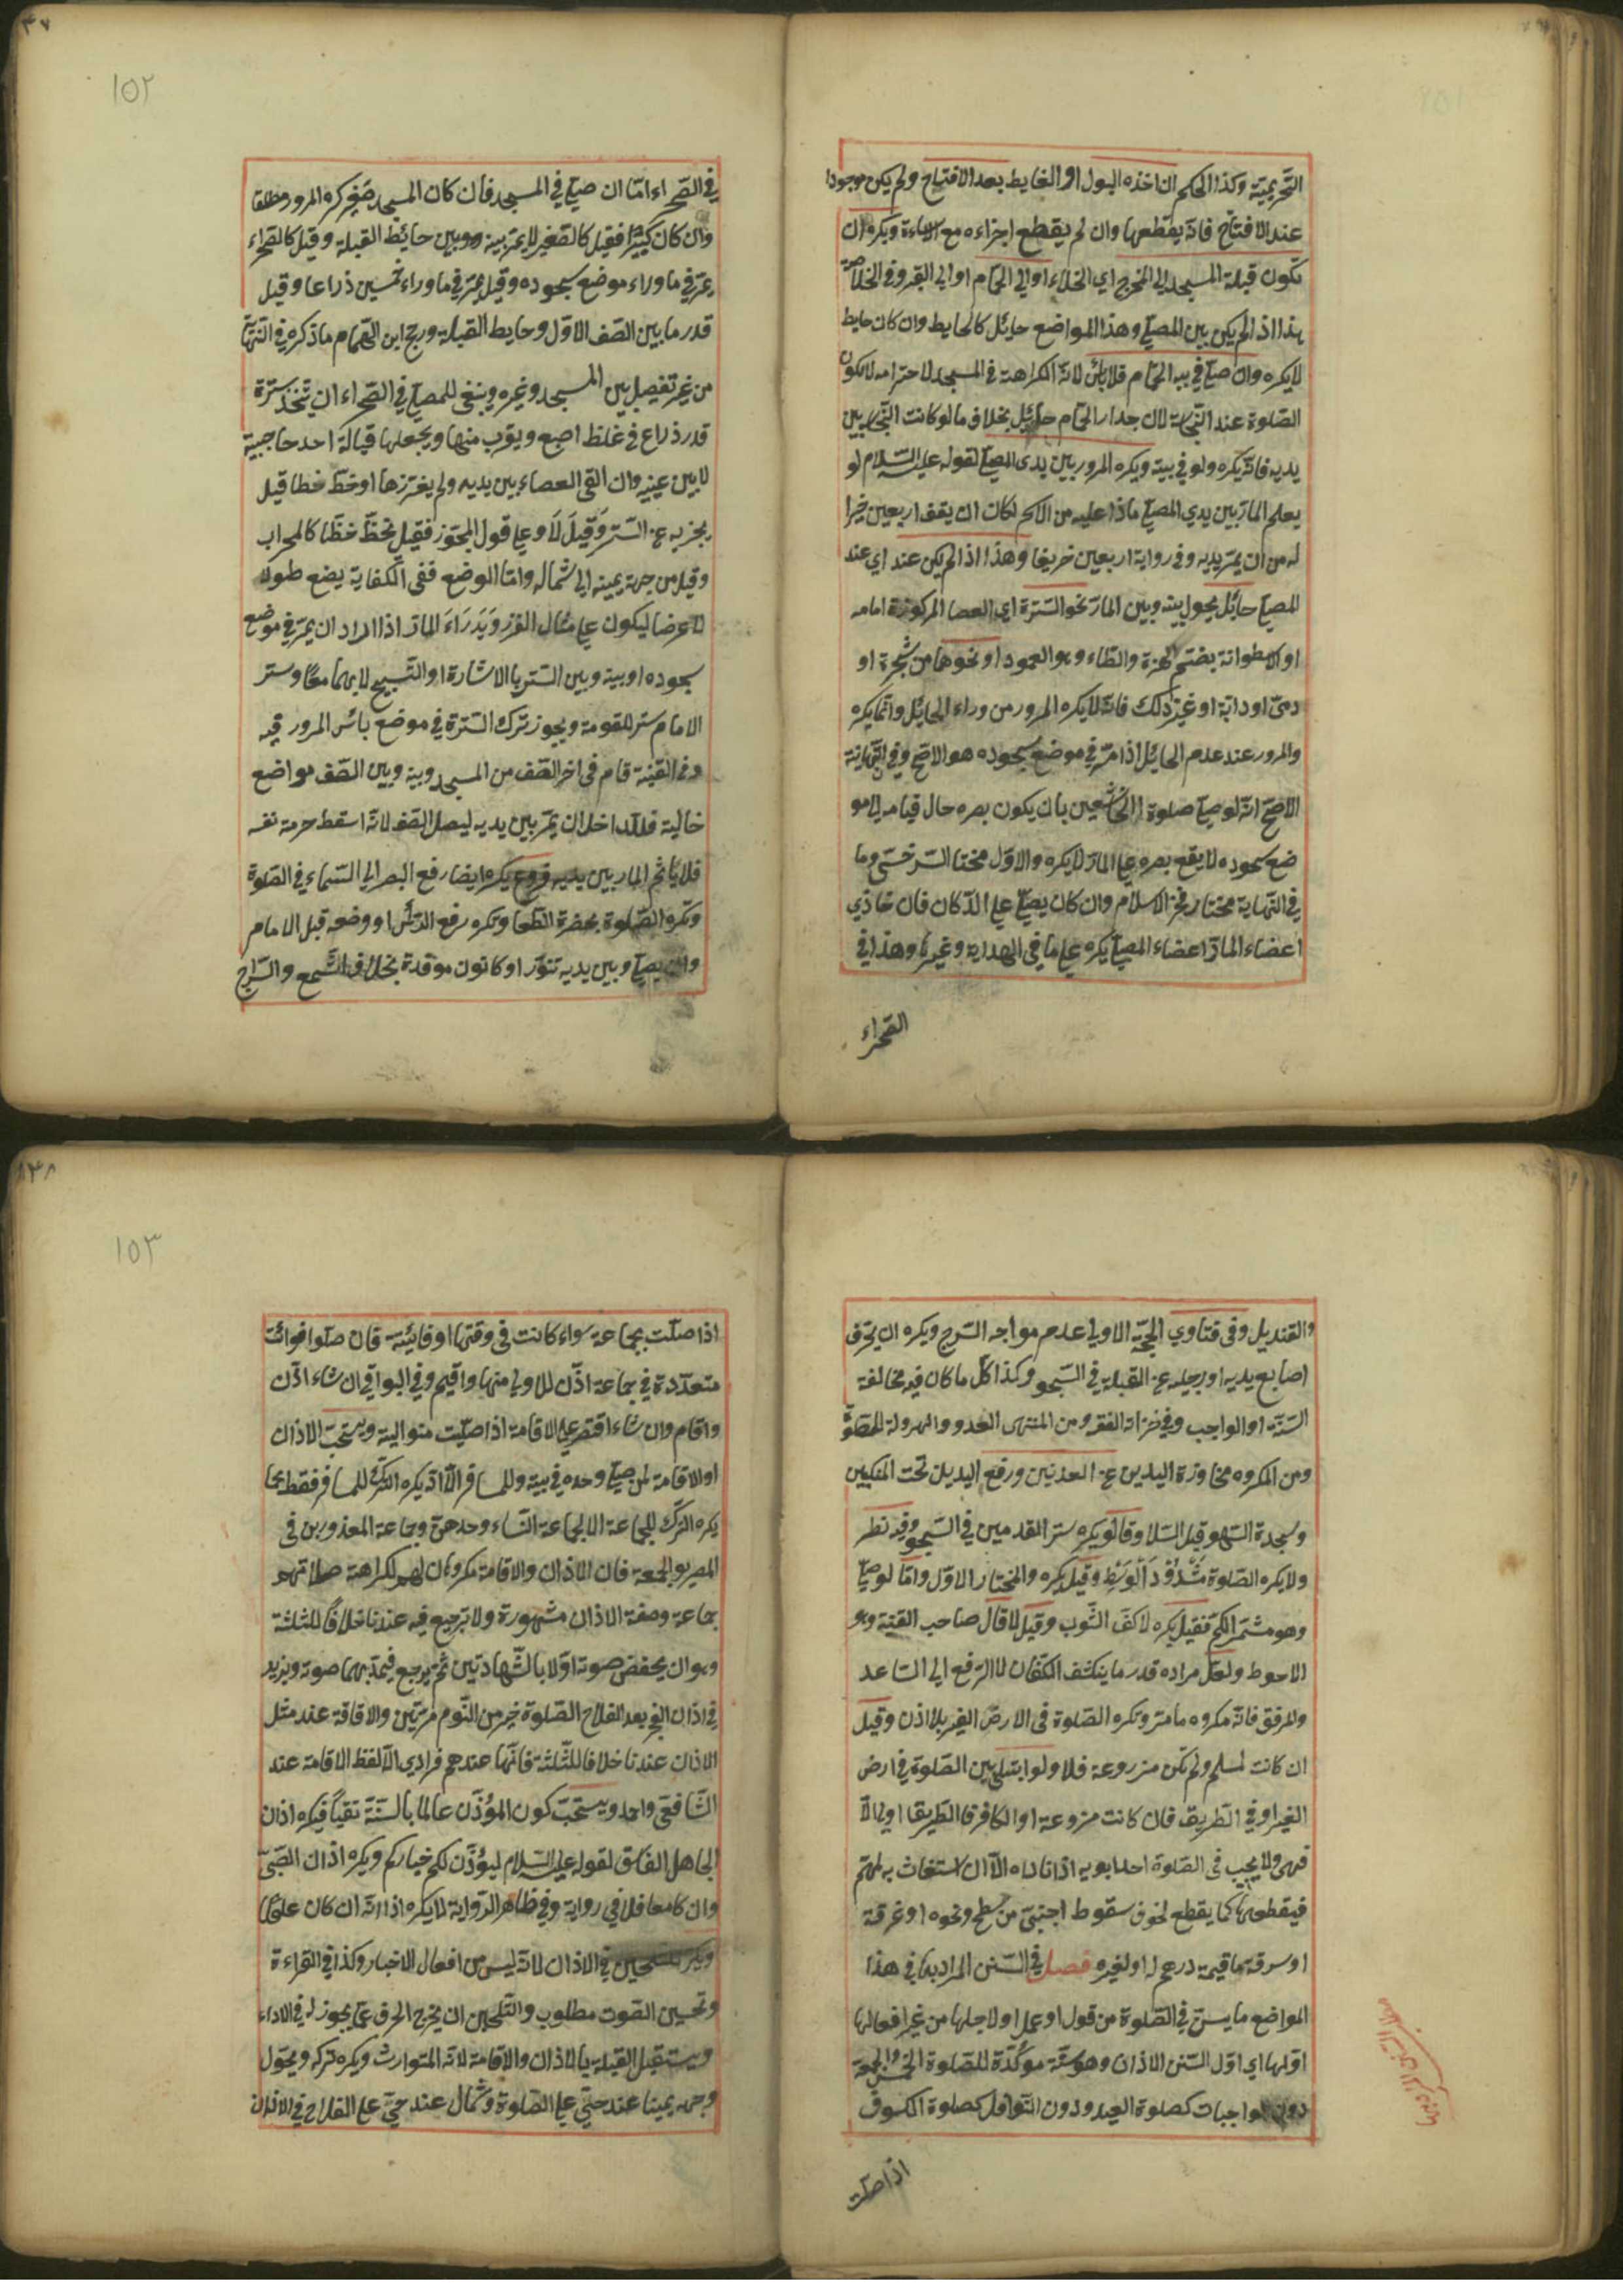 التحريمة وكذا الحكم ان اخذه البول او الغايط بعد الافتتاح ولم يكن موجودا
عند الافتتاح فانه يقطعها وان لم يقطع اجزاءه مع الاساءة ويكره ان
تكون قبلة المسجد الى المخرج اي الخلاء او الى الحمام او الى القبر وفي الخلاصة
هذا اذا لم يكن بين المصلي وهذا المواضع حايل كالحايط وان كان حايط
لا يكره وان صلي في بيت الحمام فلا بأس لانه الكراهة في المسجد لاحترامه لا لكون
الصلوة عند النجاسة لان جدار الحمام حايل بخلاف ما لو كانت النجاسة بين
يديه فانه يكره ولو في بيته ويكره المرور بين يدى المصلي لقوله عليه السلام لو
يعلم المار بين يدي المصلي ماذا عليه من الاثم لكان ان يقف اربعين خيرا
له من ان يمر يديه وفي رواية اربعين خريفا وهذا اذا لم يكن عند اي عند
المصلي حائل يحول بينه وبين المار نحو السترة اي العصا المركوزة امامه
او الاسطوانة بضم الهمزة والطاء وهو العمود او نحوها من شجرة او
دمى او دابة او غير ذلك فانه لا يكره المرور من وراء الحائل وانما يكره
والمرور عند عدم الحائل اذا مر في موضع سجوده هو الاصح وفي النهاية
الاصح انه لو صلي صلوة الخاشعين بان يكون بصره حال قيامه الى مو
ضع سجوده لا يقع بصره علي المار لا يكره والاول مختار السرخسي وما
في النهاية مختار فخر الاسلام وان كان يصلي علي الدكان فان حاذي
اعضاء المار اعضاء المصلي يكره علي ما في الهداية وغيرها وهذا في
الصحراء
١٥٢
في الصحراء اما ان صلي في المسجد فان كان المسجد صغير كره المرور مطلقا
وان كان كبيرا فقيل كالصغير لا يمر بينه وبين حائط القبلة وقيل كالصحراء
يمر في ما وراء موضع سجوده وقيل يمر في ما وراء خمسين ذراعا وقيل
قدر ما بين الصف الاول وحايط القبلة ورجح ابن الهمام ما ذكره في النهاية
من غير تفصيل بين المسجد وغيره وينبغي للمصلي في الصحراء ان يتخذ سترة
قدر ذراع في غلظ اصبع ويقرب منها ويجعلها قبالة احد حاجبيه
لا بين عينيه وان القى العصاء بين يديه ولم يغرزها او خط خطا قيل
يجزيه عن الستر وقيل لا وعلي قول المجوز فقيل يخط خطا كالمحراب
وقيل من جهة يمينه الى شماله واما الوضع ففي الكفاية يضع طولا
لا عرضا ليكون علي مثال الغرز ويدراء المار اذا اراد ان يمر في موضع
سجوده او بينه وبين الستر بالاشارة او التسبيح لا بهما معا وستر
الامام ستر للقومة ويجوز ترك السترة في موضع يأس المرور فيه
وفي القنية قام في اخر الصف من المسجد وبينه وبين الصف مواضع
خالية فللداخل ان يمر بين يديه ليصل الصف لانه اسقط حرمة نفسه
فلا يأثم المار بين يديه فروع يكره ايضا رفع البصر الى السماء في الصلوة
وتكره الصلوة بحضرة الطعا وتكره رفع الرأس او وضعه قبل الامام
وان يصلي وبين يديه تنور او كانون موقدة بخلاف الشمع والسراج
والقنديل وفي فتاوي الحجة الاولي عدم مواجه السرج ويكره ان يحرف
اصابع يديه او رجليه عن القبلة في السجو وكذا كل ما كان فيه مخالفة
السنة او الواجب وفي خزانة الفقه ومن المنهى العدو والهرولة للصلوة
ومن المكروه مجاوزة اليدين عن العذنين ورفع اليدين تحت المنكبين
وسجدة السهو قبل السلا وقالو يكره ستر القدمين في السجو وفيه نظر
ولا يكره الصلوة مشدود الوسط وقيل يكره والمختار الاول واما لو صلي
وهو مشمر الكم فقيل يكره لا كف الثوب وقيل لا قال صاحب القنية وهو
الاحوط ولعل مراده قدر ما ينكشف الكفان لا الترفع الى الساعد
والمرفق فانه مكروه ما مر وتكره الصلوة في الارض الغير بلا اذن وقيل
ان كانت لمسلم ولم تكن مزروعة فلا ولو ابتلي بين الصلوة في ارض
الغير او في الطريق فان كانت مزروعة او الكافر فا الطريقا اولي الا
فهى ولا يجيب في الصلوة احد ابويه اذا ناداه الا ان استغاث به لمهم
فيقطعها كما يقطع لخوف سقوط اجنبي من سطح ونحوه او غرقة
او سرقة ما قيمة درهم له او لغيره فصل في السنن المراد بها في هذا
المواضع ما يسن في الصلوة من قول او عمل او لاجلها من غير افعالها
اولها اي اول السنن الاذان وهو سنة مؤكدة للصلوة الخمس والجمعة
دون الواجبات كصلوة العيد ودون النوافل كصلوة الكسوف
اذا صلت
١٥٣
اذا صلت بجماعة سواء كانت في وقتها او فايئة فان صلوا فوائت
متعددة في جماعة اذن للاولي منها واقيم وفي البواقي ان شاء اذن
واقام وان شاء اقتصر علي الاقامة اذا صليت متوالية ويستحب الاذان
او الاقامة لمن صلي وحده في بيته وللمسافر الا انه يكره الترك للمسافر فقط كما
يكره الترك للجماعة الا لجماعة النساء وحدهن وجماعة المعذورين في
المصر يو الجمعة فان الاذان والاقامة مكروهان لهم لكراهة صلاتهم
جماعة وصفة الاذان مشهورة ولا ترجيع فيه عندنا خلافا للثلثة
وهو ان يخفض صوته اولا بالشهادتين ثم يرجع فيمد بهما صوته ويزيد
في اذان الفجر بعد الفلاح الصلوة خير من النوم مرتين والاقاقة عند مثل
الاذان عندنا خلافا للثلثة فانها عندهم فرادي الا لفظ الاقامة عند
الشافعي واحد ويستحب كون المؤذن عالما بالسنة تقيا فيكره اذان
الجاهل الفاسق لقوله عليه السلام ليؤذن لكم خياركم ويكره اذان الصبى
وان كا معا فلا في رواية وفي ظاهر الرواية لا يكره اذا انه ان كان
ويكره في الاذان لانه ليس من افعال الاخبار وكذا في القراءة
وتحسين الصوت مطلوب والتلحين ان يخرج الحرف عما يجوز له في الاداء
ويستقبل القبلة بالاذان والاقامة لانه المتوارث ويكره تركه ويحول
وجهه يمينا عند حي علي الصلوة وشمال عند حي علي الفلاح في الاذان